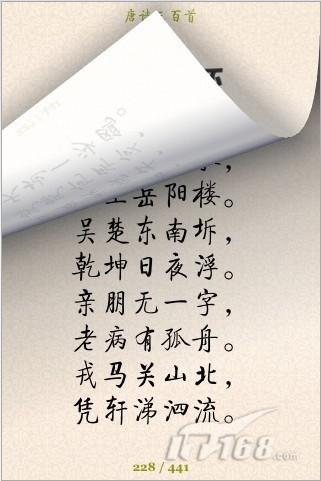 唐诗三百首
岳阳楼。
吴楚东南坼，
乾坤日夜浮。
亲朋无一字，
老病有孤舟。
戎马关山北，
凭轩涕泗流。
228 / 441
IT168.com